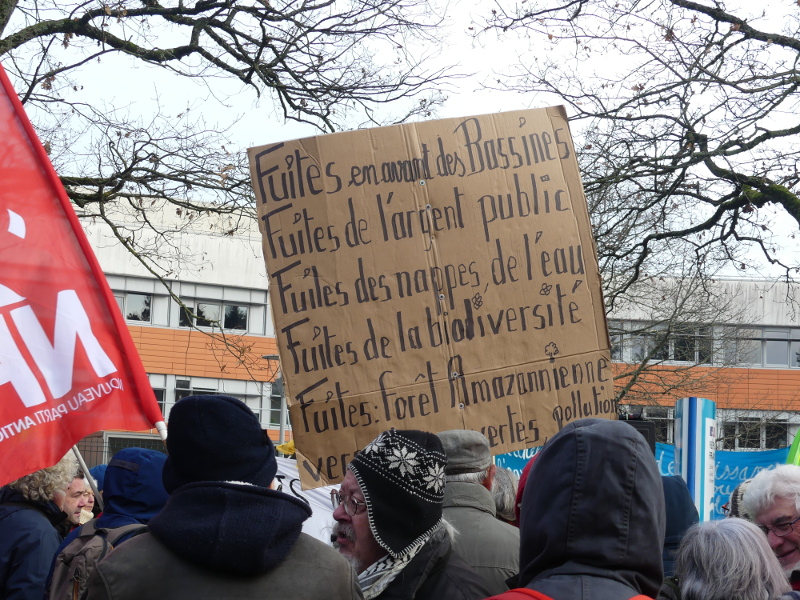 Fuites en avant des Bassines
Fuites de l'argent public
Fuites des nappes de l'eau
Fuites de la biodiversité
Fuites: forêt Amazannienne
vertes pollution
NOUVEAU PARTI ANTI